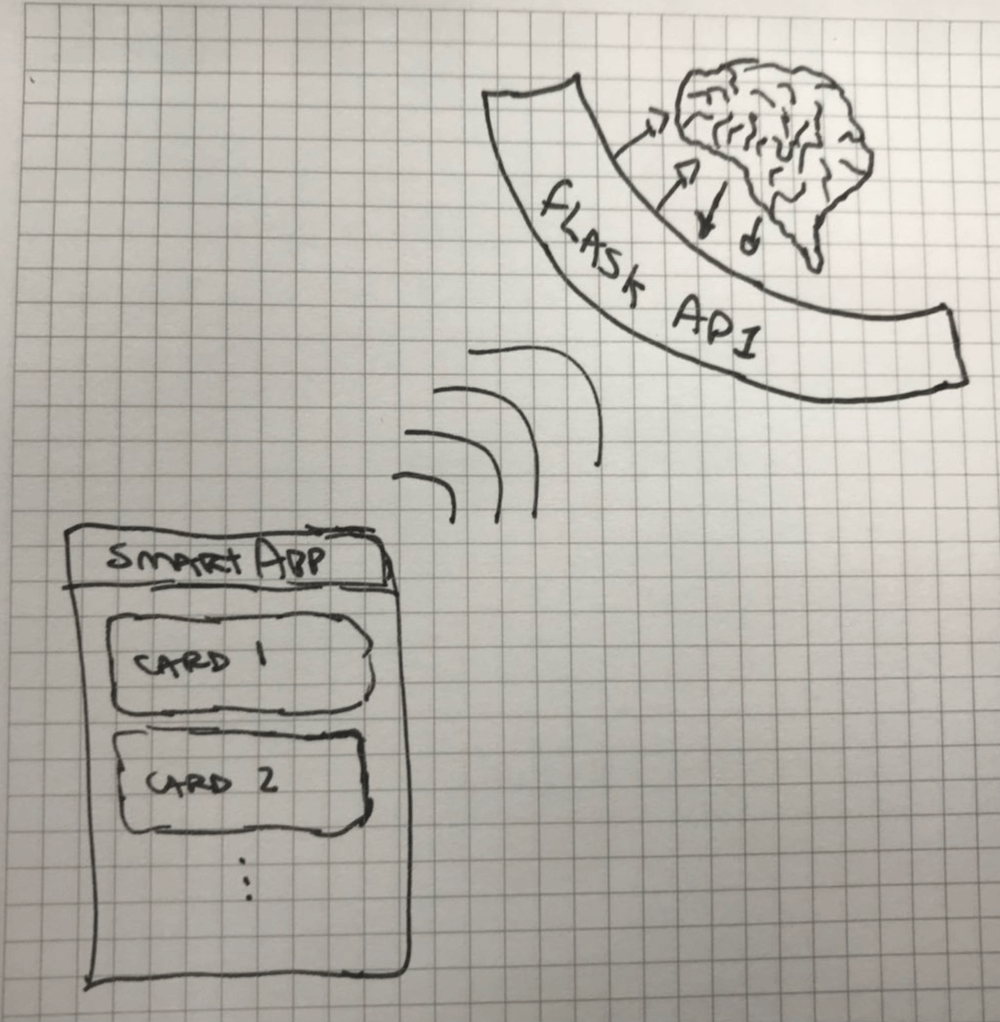 FLASK API
SMART APP
CARD 1
CARD 2
⋮